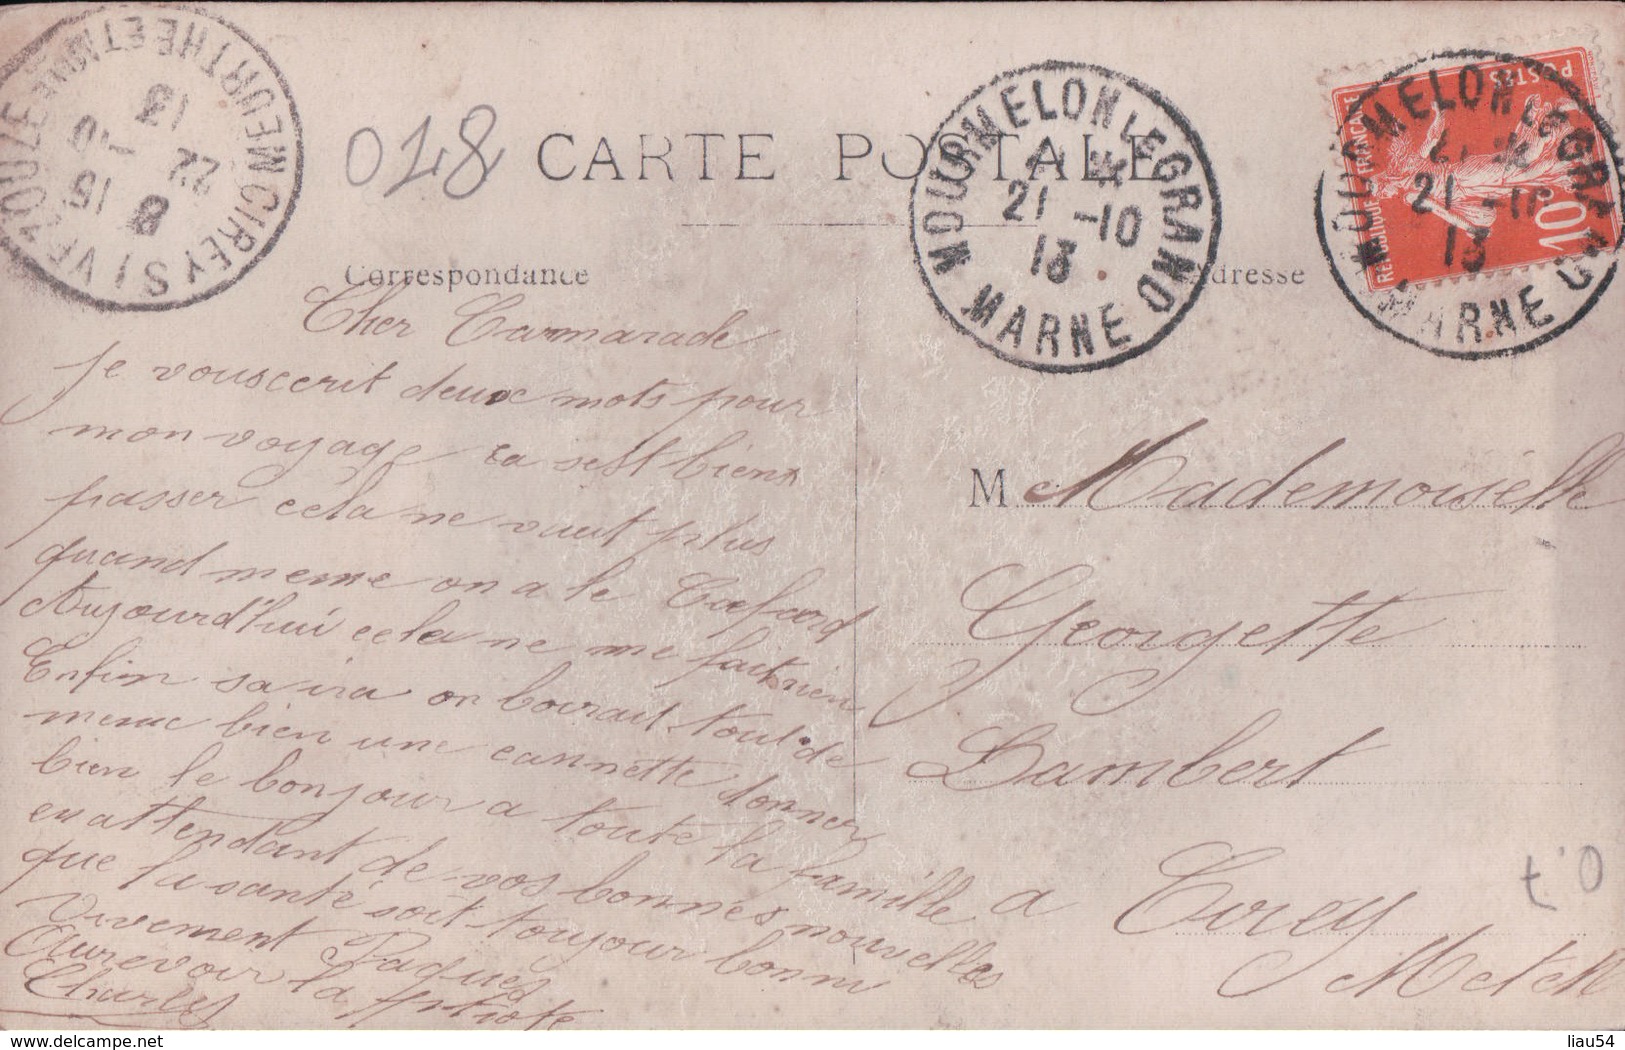 CIREY S/ VEZOUZE MEURTHE ET MLLE
8
15
22 -10
13
018
CARTE POSTALE
MOURMELON LE GRAND
21 -10
13
MARNE
POSTES
REPUBLIQUE FRANCAISE
10
MOURMELON LE GRAND
21 -10
13
MARNE
Correspondance
Adresse
Cher Carmarade
Je vouscerit deux mots pour
mon voyage ca sest bien
passer cela ne vaut plus
quand meme on a le Cafard
Aujourd'hui cela ne me fait rien
Enfin sa ira on boirait tout de
meme bien une cannette donner
bien le bonjour a toute la famille
en attendant de vos bonnes nouvelles
que la santé soit toujour bonne
Vivement Paques
Aurevoir la
Charles
M Mademoiselle
Georgette
Lambert
a Cirey
M et M
t'0
liau54